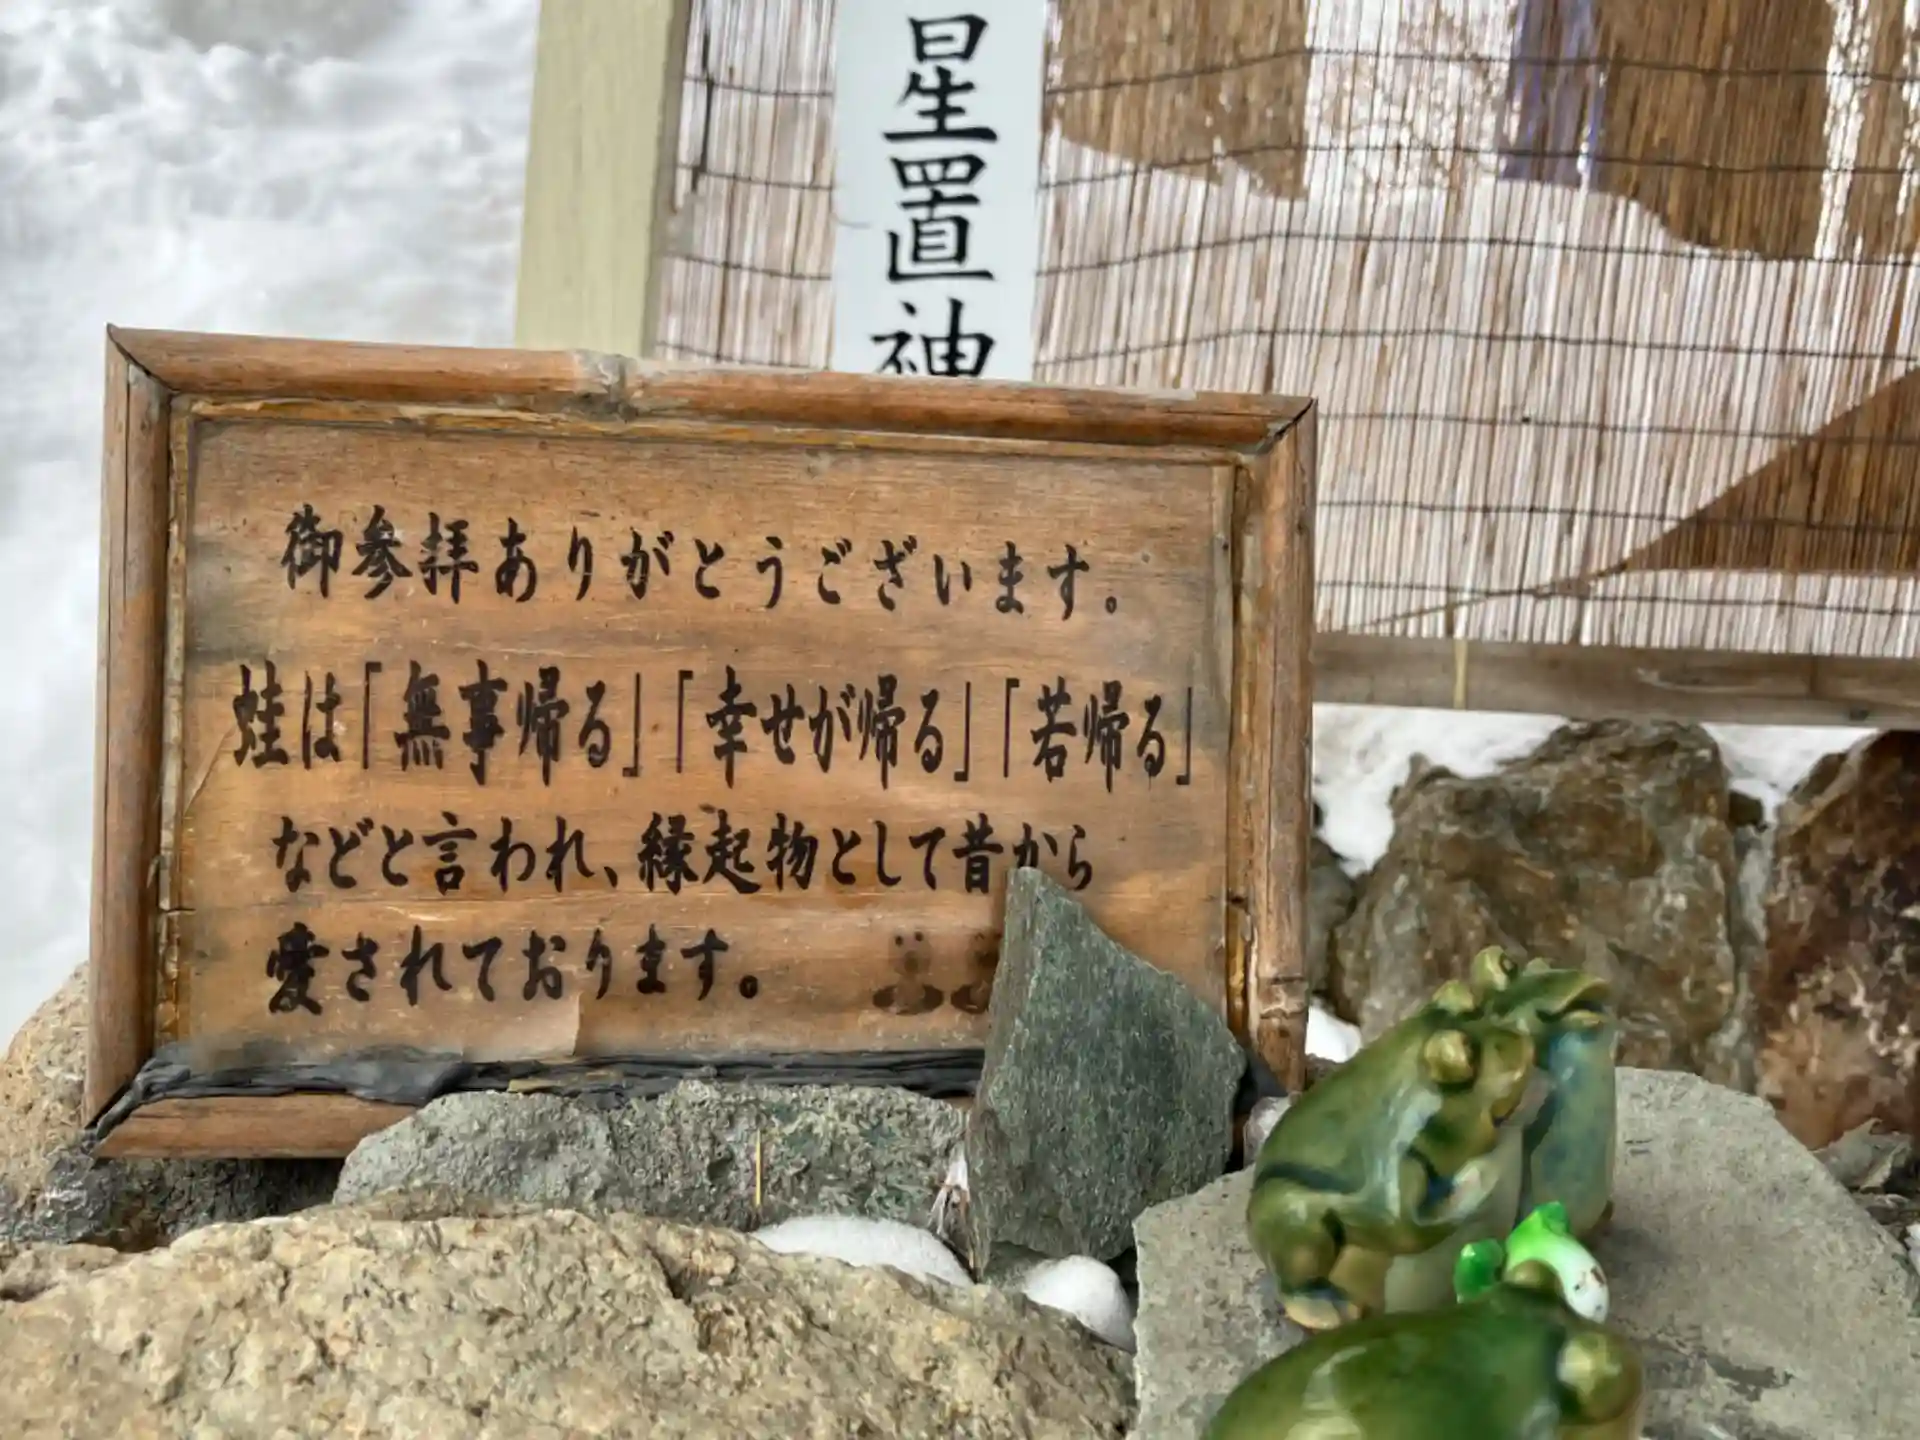 星置神
御参拝ありがとうございます。
蛙は「無事帰る」「幸せが帰る」「若帰る」
などと言われ、縁起物として昔から
愛されております。